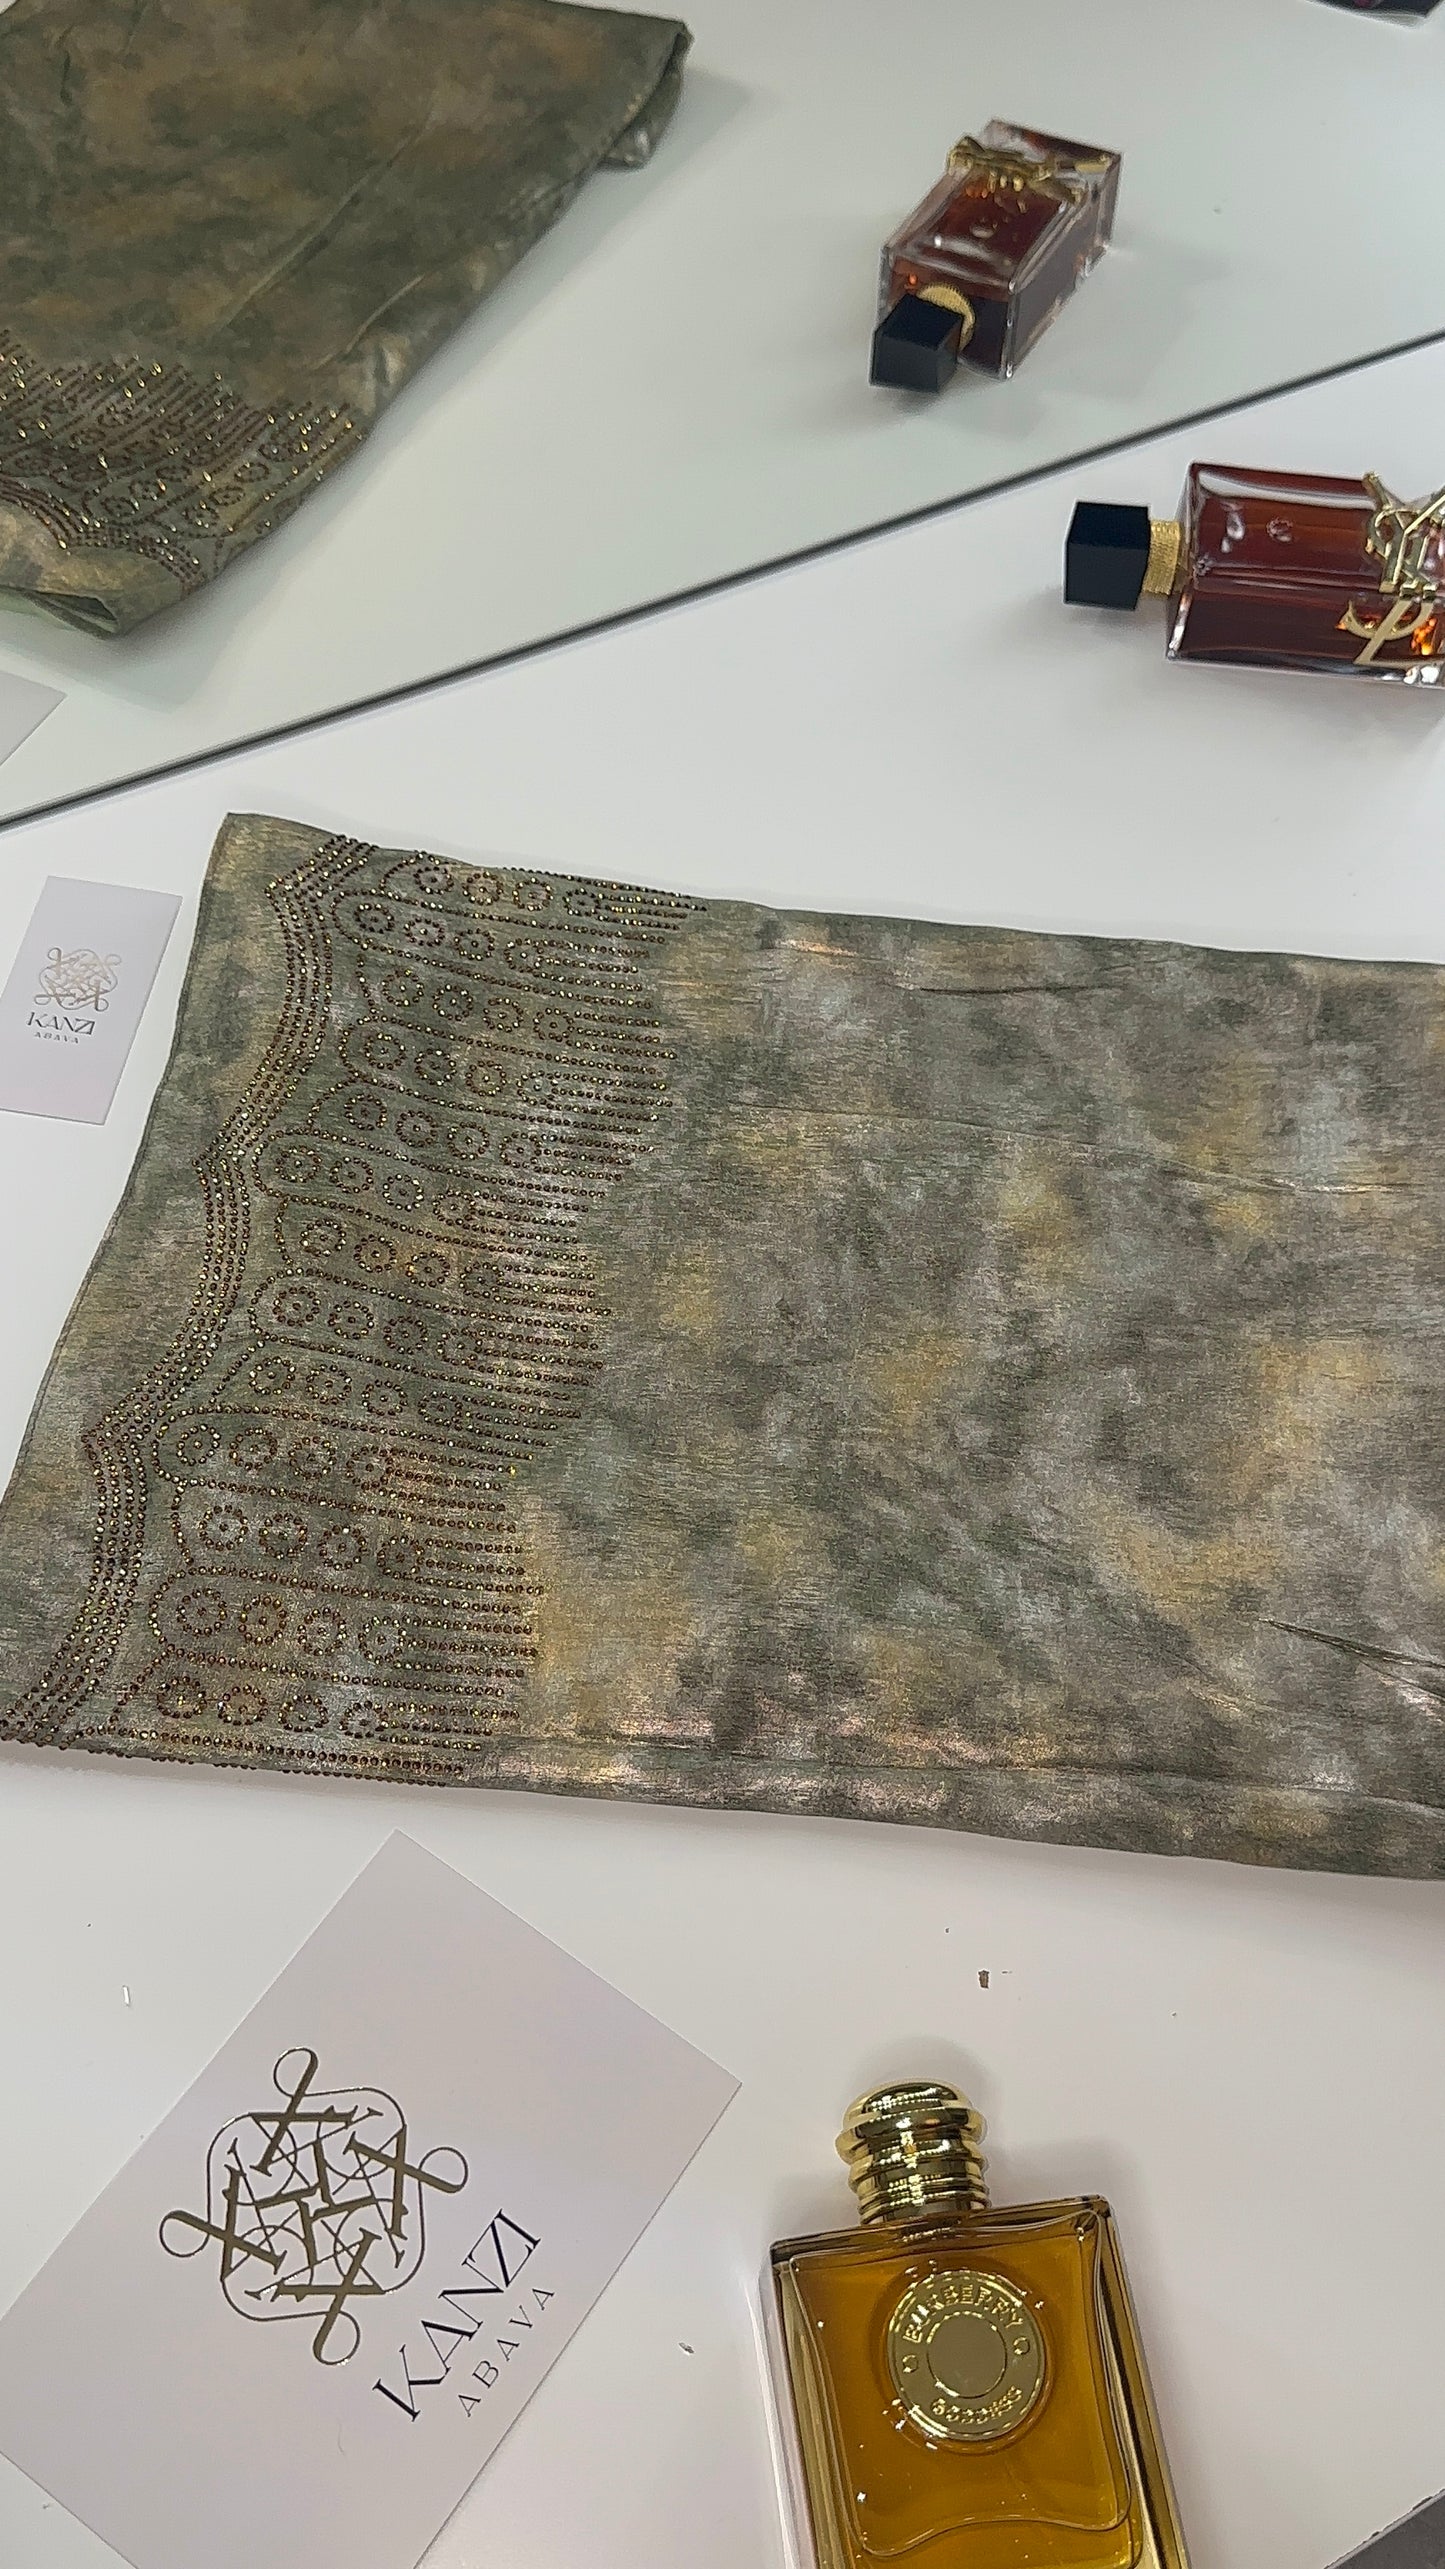 YSL
KANZI
ABAYA
KANZI
ABAYA
BURBERRY
GODDESS